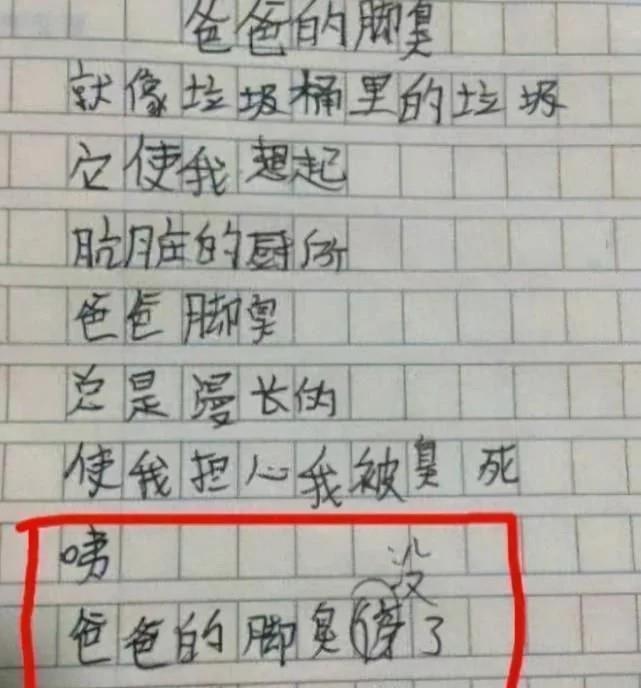 爸爸的脚臭
就像垃圾桶里的垃圾
它使我想起
肮脏的厕所
爸爸脚臭
总是漫长的
使我担心我被臭死
咦
没
爸爸的脚臭了